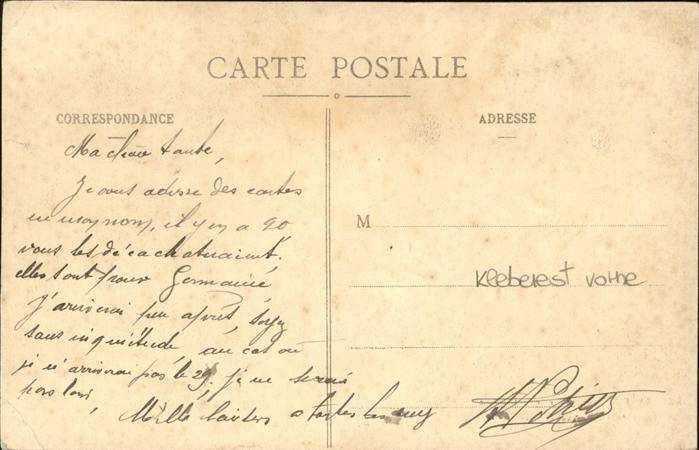 CARTE POSTALE
CORRESPONDANCE
ADRESSE
Ma chère tante,
Je vous adresse des cartes
en mon nom, il y en a 20
vous les
elles sont pour Germaine
J'arriverai peu après, soyez
sans inquiétude au cas où
je n'arriverai pas le 29, je ne serais
pas loin,
Mille baisers a toutes
M
Kleberest votre